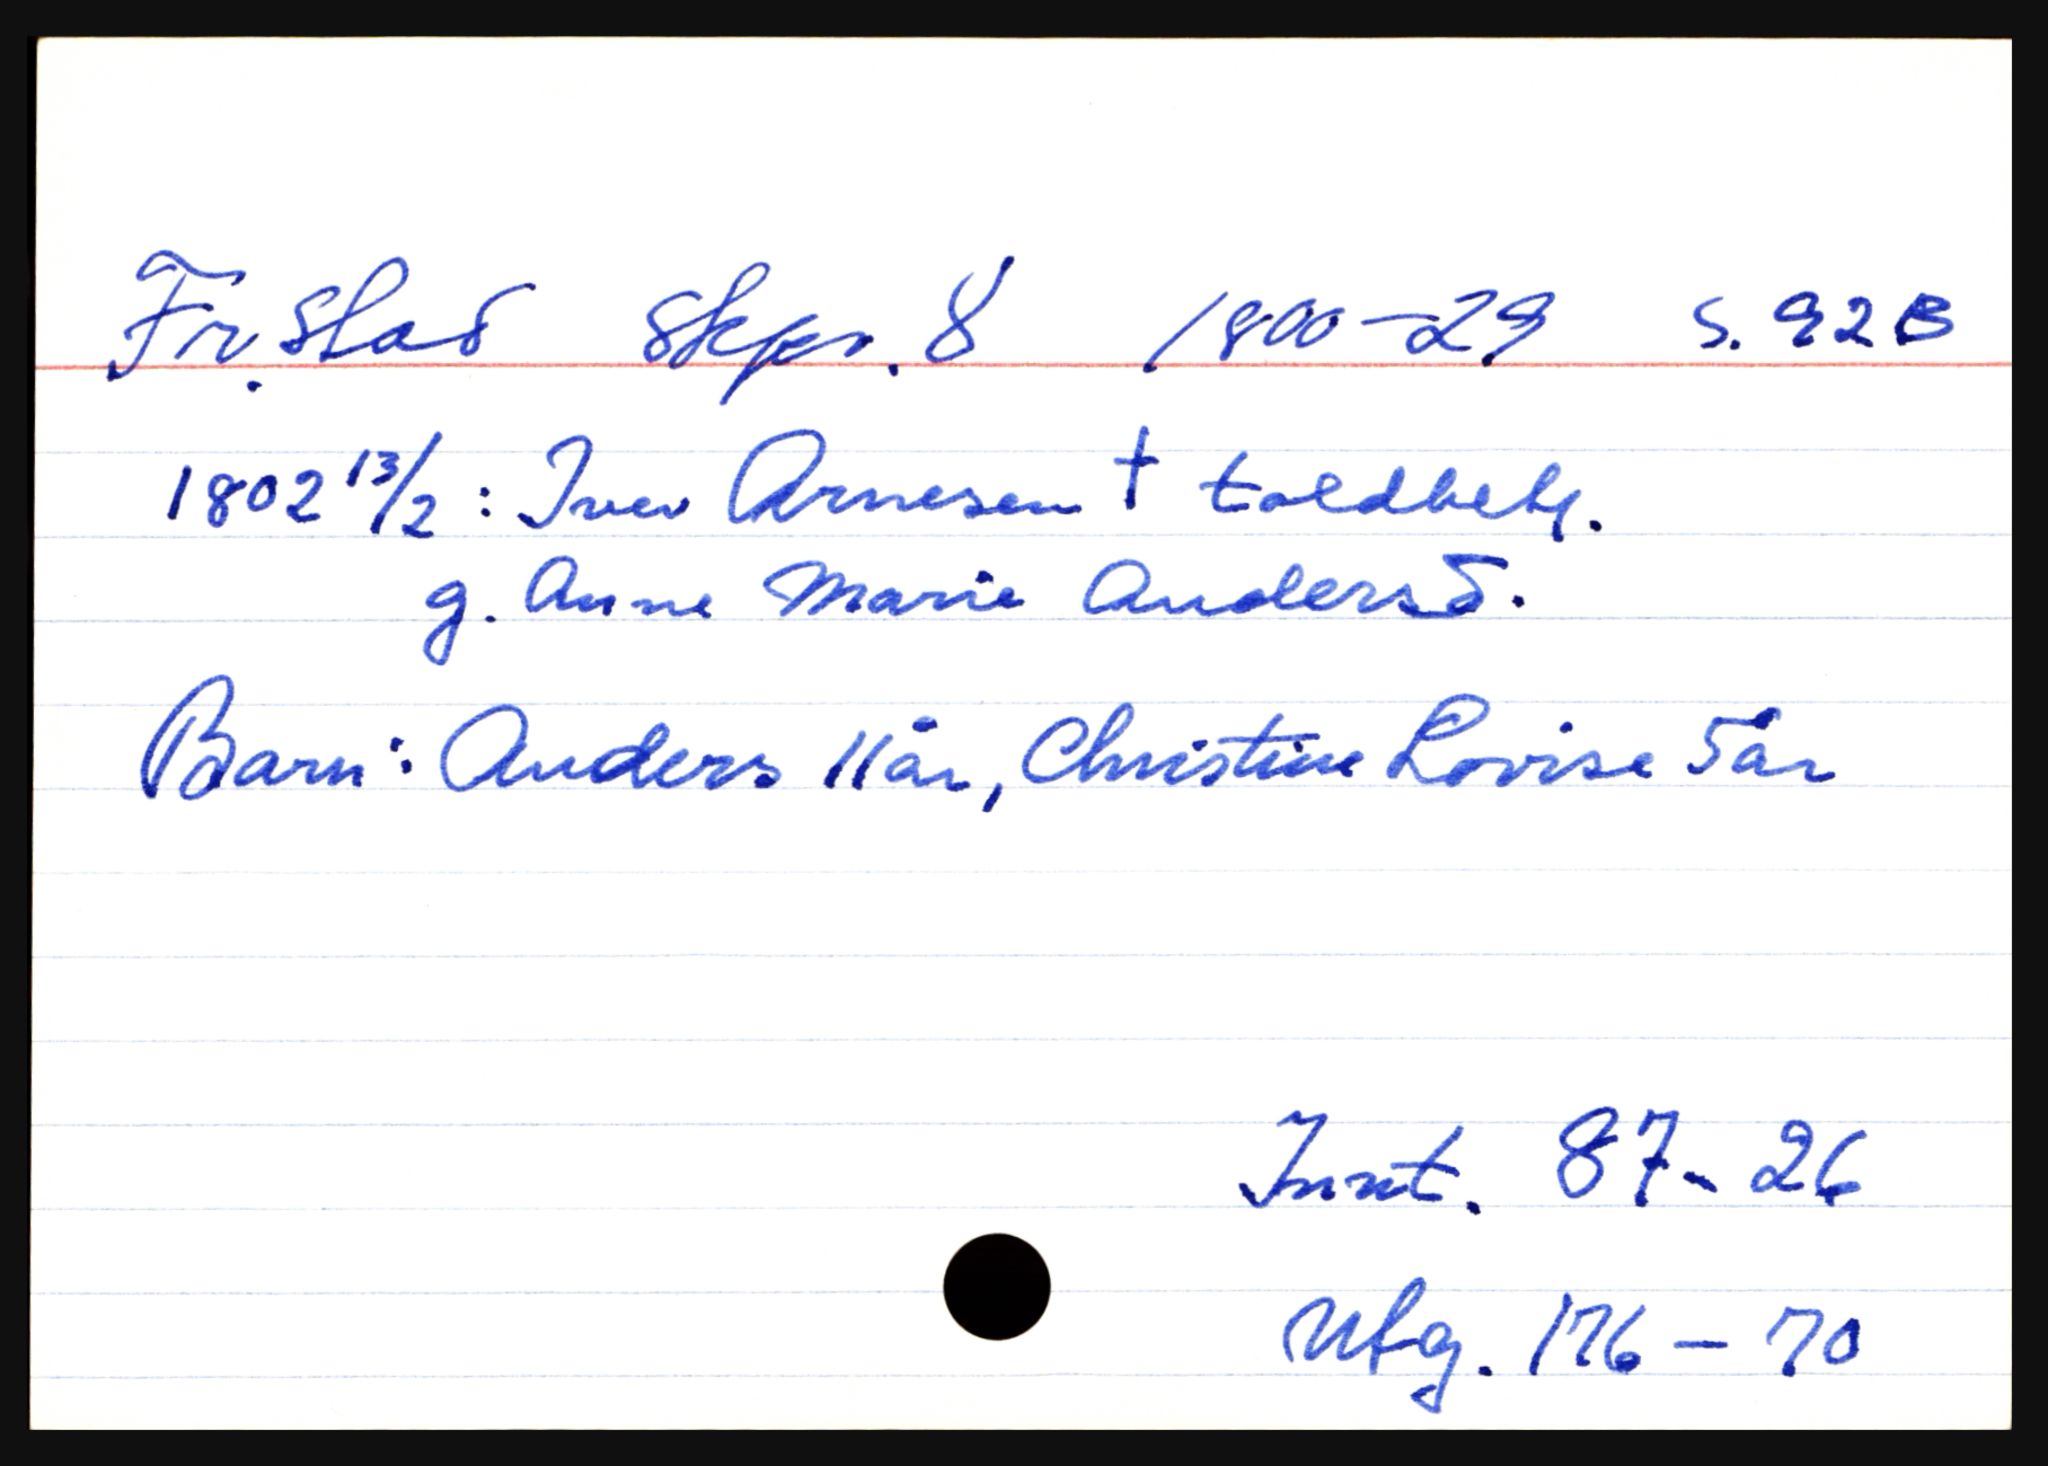 Fr.stad Skpr. 8 1800-29 S. 92B
1802 13/2: Iver Arnesen † toldbetj.
g. Anne Marie Andersd.
Barn: Anders 11 år, Christine Lovise 5 år
Innt. 87-26
Utg. 176-70